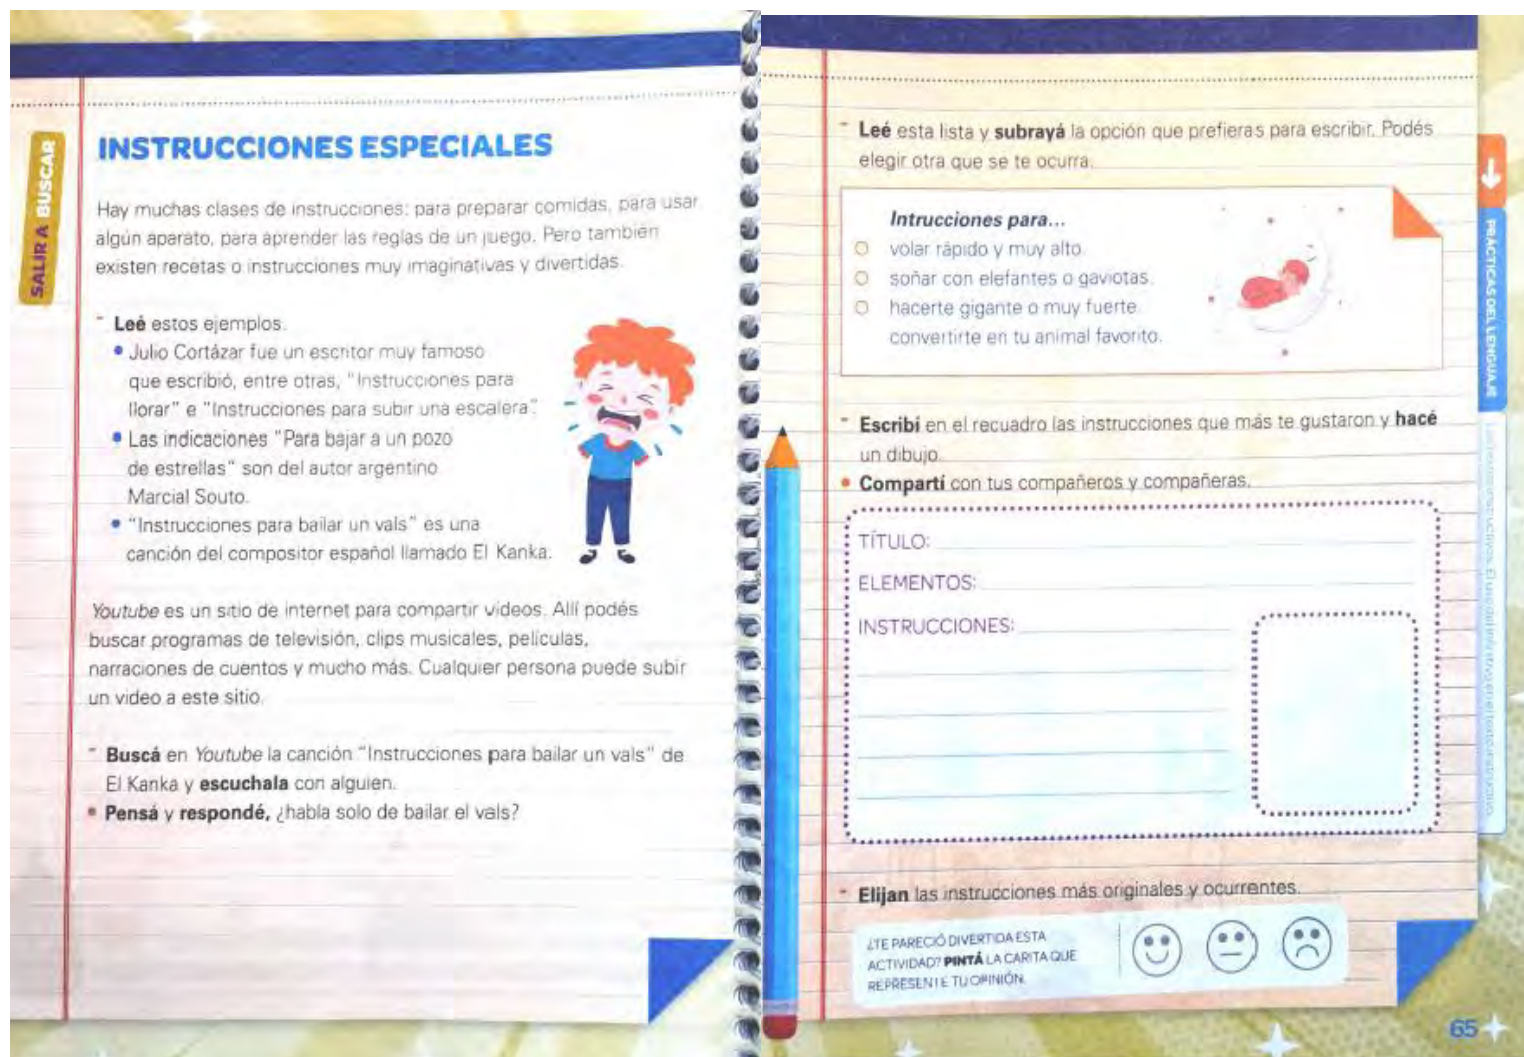 SALIR A BUSCAR
INSTRUCCIONES ESPECIALES
Hay muchas clases de instrucciones: para preparar comidas, para usar
algún aparato, para aprender las reglas de un juego. Pero también
existen recetas o instrucciones muy imaginativas y divertidas.
- Leé estos ejemplos.
• Julio Cortázar fue un escritor muy famoso
que escribió, entre otras, "Instrucciones para
llorar" e "Instrucciones para subir una escalera".
• Las indicaciones "Para bajar a un pozo
de estrellas" son del autor argentino
Marcial Souto.
• "Instrucciones para bailar un vals" es una
canción del compositor español llamado El Kanka.
Youtube es un sitio de internet para compartir videos. Allí podés
buscar programas de televisión, clips musicales, películas,
narraciones de cuentos y mucho más. Cualquier persona puede subir
un video a este sitio.
- Buscá en Youtube la canción "Instrucciones para bailar un vals" de
El Kanka y escuchala con alguien.
• Pensá y respondé, ¿habla solo de bailar el vals?
- Leé esta lista y subrayá la opción que prefieras para escribir. Podés
elegir otra que se te ocurra.
Intrucciones para...
volar rápido y muy alto.
soñar con elefantes o gaviotas.
hacerte gigante o muy fuerte.
convertirte en tu animal favorito.
- Escribí en el recuadro las instrucciones que más te gustaron y hacé
un dibujo.
• Compartí con tus compañeros y compañeras.
TÍTULO:
ELEMENTOS:
INSTRUCCIONES:
- Elijan las instrucciones más originales y ocurrentes.
¿TE PARECIÓ DIVERTIDA ESTA
ACTIVIDAD? PINTÁ LA CARITA QUE
REPRESENTE TU OPINIÓN.
PRÁCTICAS DEL LENGUAJE
65